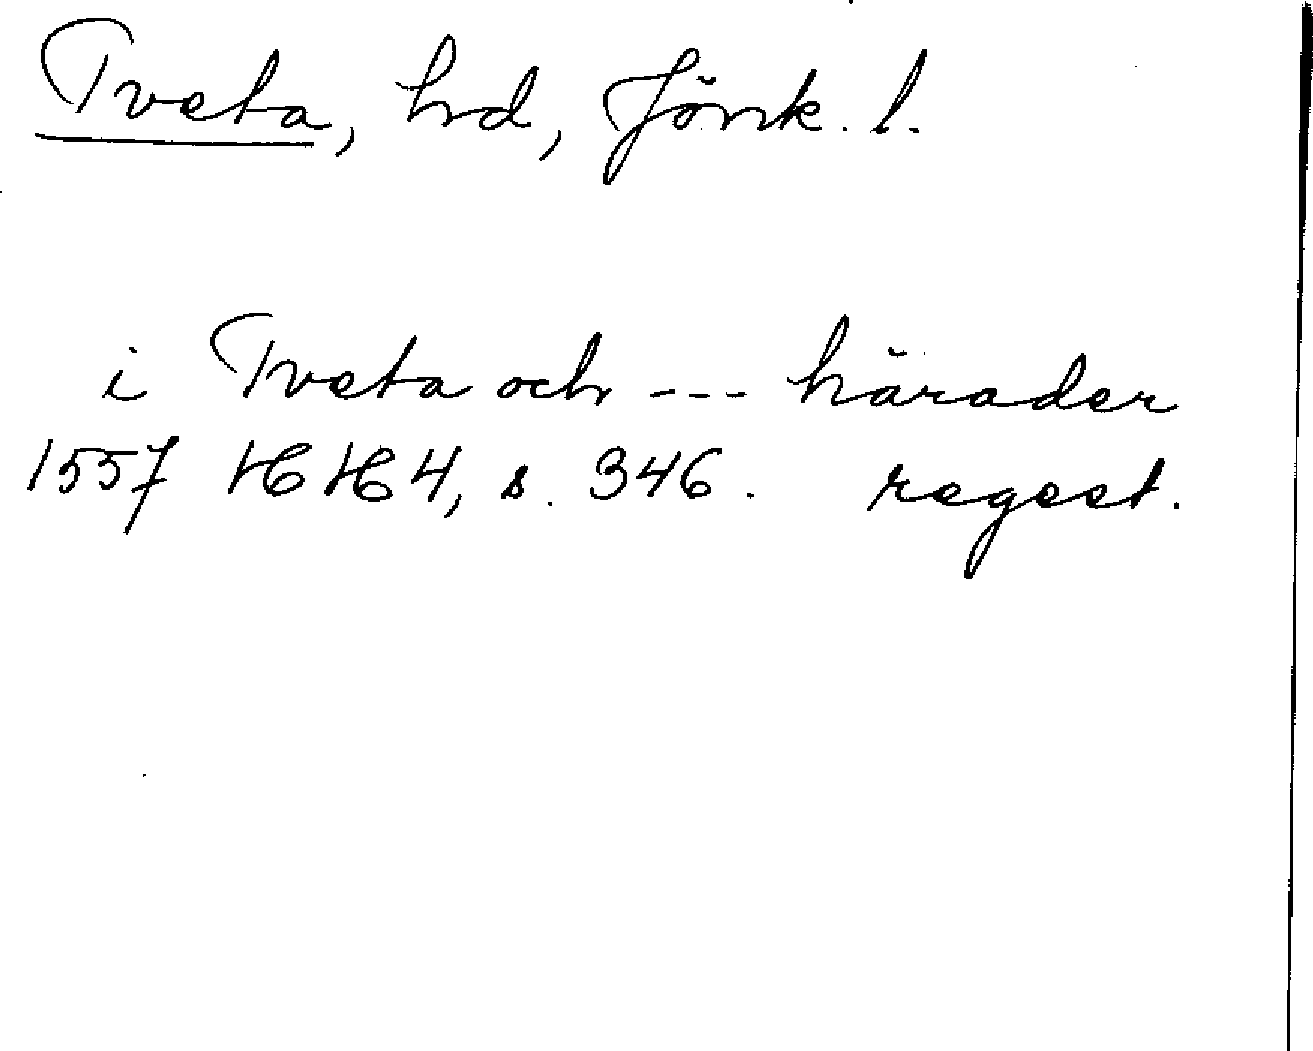 Tveta, hd, Jönk. l.
i Tveta och --- härader
1557 HH 4, s. 346. regest.